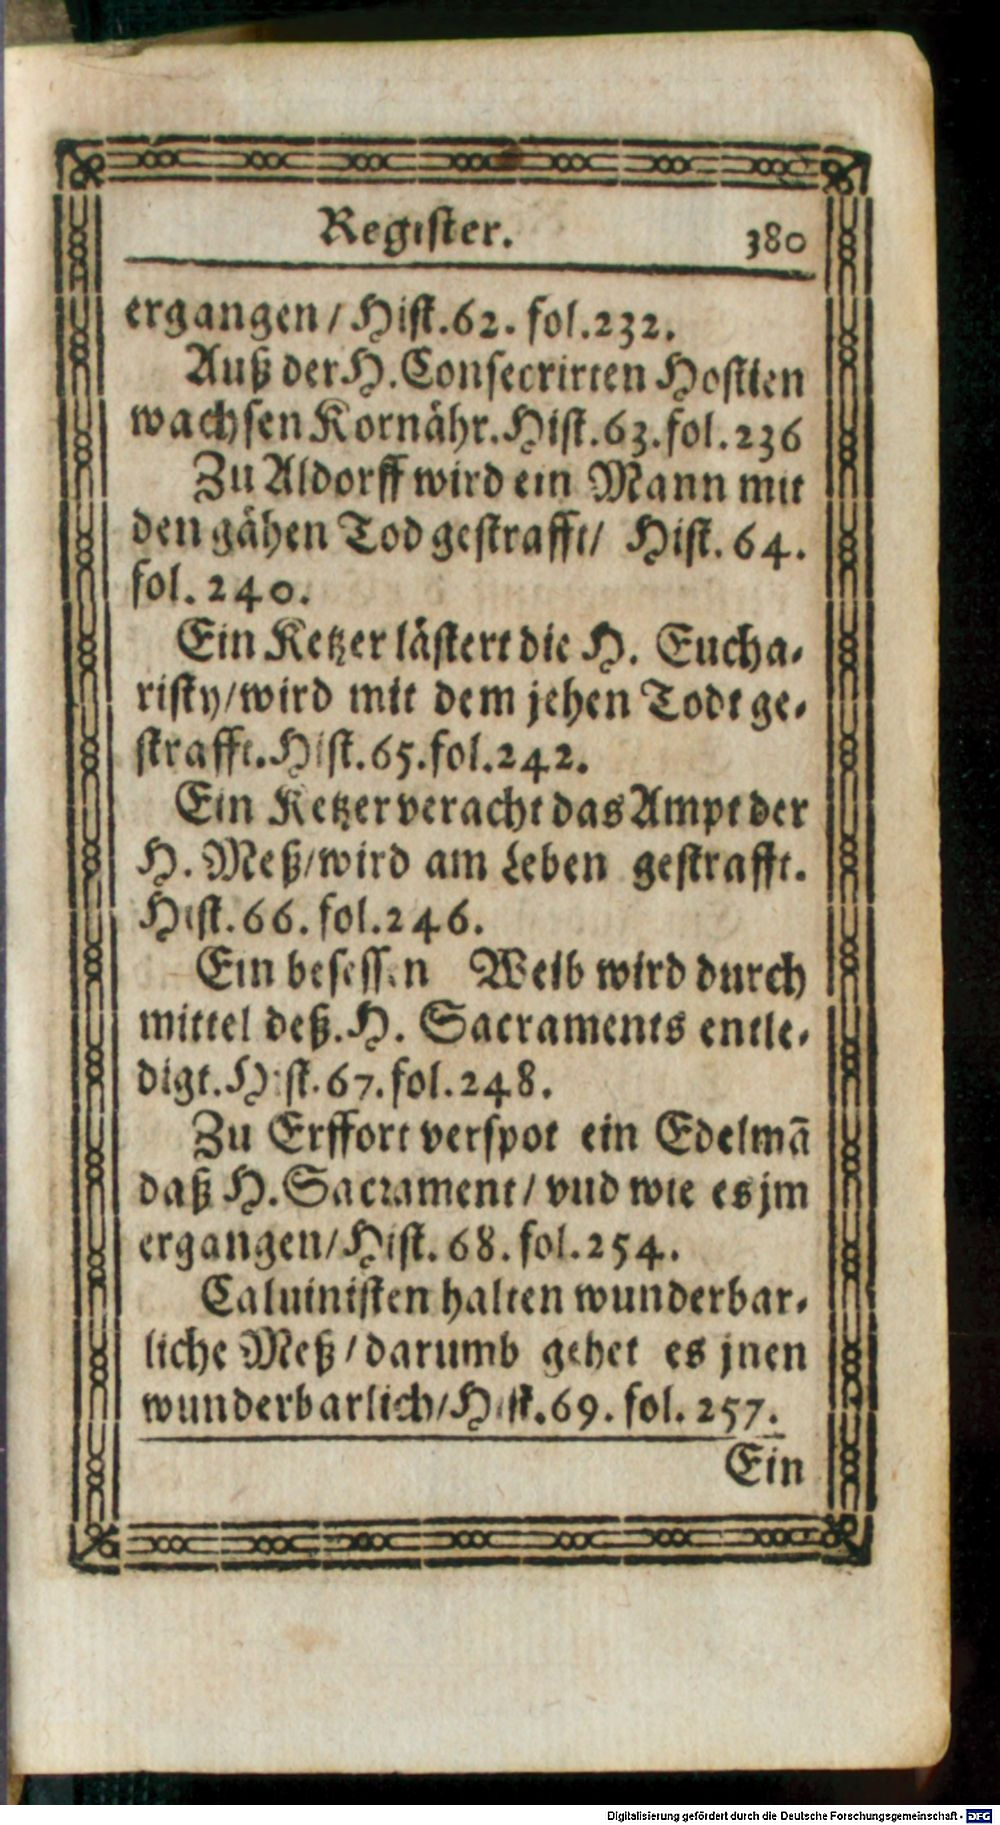 Register. 380
ergangen / Hist.62. fol.232.
Auß der H. Consecrirten Hostien
wachsen Kornähr. Hist.63.fol.236
Zu Aldorff wird ein Mann mit
den gähen Tod gestrafft/ Hist. 64.
fol. 240.
Ein Ketzer lästert die H. Eucha-
risty/wird mit dem jehen Todt ge-
strafft. Hist.65.fol.242.
Ein Ketzer veracht das Ampt der
H. Meß/wird am Leben gestrafft.
Hist.66. fol.246.
Ein besessen Weib wird durch
mittel deß.H. Sacraments entle-
digt. Hist.67.fol.248.
Zu Erffort verspot ein Edelmã
daß H. Sacrament / vnd wie es jm
ergangen/Hist. 68. fol.254.
Caluinisten halten wunderbar-
liche Meß / darumb gehet es jnen
wunderbarlich/Hist.69. fol. 257.
Ein
Digitalisierung gefördert durch die Deutsche Forschungsgemeinschaft - DFG